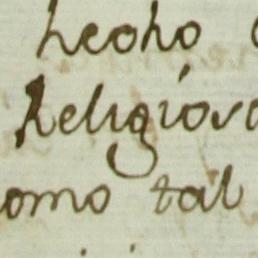 hecho
Religioso
como tal